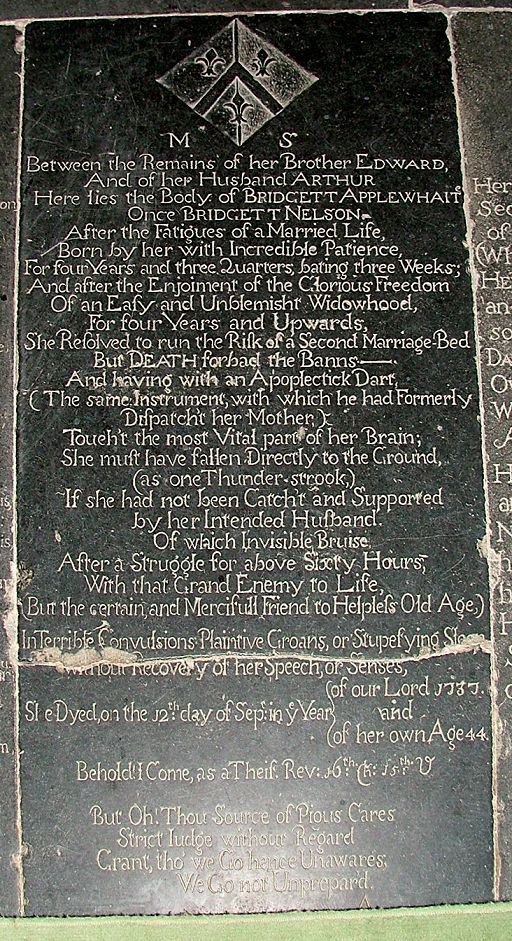 M S
Between the Remains of her Brother EDWARD,
And of her Husband ARTHUR
Here lies the Body of BRIDGETT APPLEWHAIT
Once BRIDGETT NELSON.
After the Fatigues of a Married Life,
Born by her with Incredible Patience,
For four Years and three Quarters, bating three Weeks;
And after the Enjoiment of the Glorious Freedom
Of an Easy and Unblemisht Widowhood,
For four Years and Upwards,
She Resolved to run the Risk of a Second Marriage-Bed
But DEATH forbad the Banns —
And having with an Apoplectick Dart,
(The same Instrument, with which he had Formerly
Dispatch't her Mother,)
Touch't the most Vital part of her Brain;
She must have fallen Directly to the Ground,
(as one Thunder-strook,)
If she had not been Catch't and Supported
by her Intended Husband.
Of which Invisible Bruise,
After a Struggle for above Sixty Hours,
With that Grand Enemy to Life,
(But the certain, and Mercifull Friend to Helpless Old Age,)
In Terrible Convulsions Plaintive Groans, or Stupefying
without Recovery of her Speech, or Senses,
(of our Lord 1737.
She Dyed, on the 12th day of Sep: in ye Year) and
(of her own Age 44.
Behold! I Come, as a Theif. Rev: 16th Ch: 15th V
But Oh! Thou Source of Pious Cares
Strict Iudge without Regard
Grant, tho' we Go hence Unawares,
We Go not Unprepard.